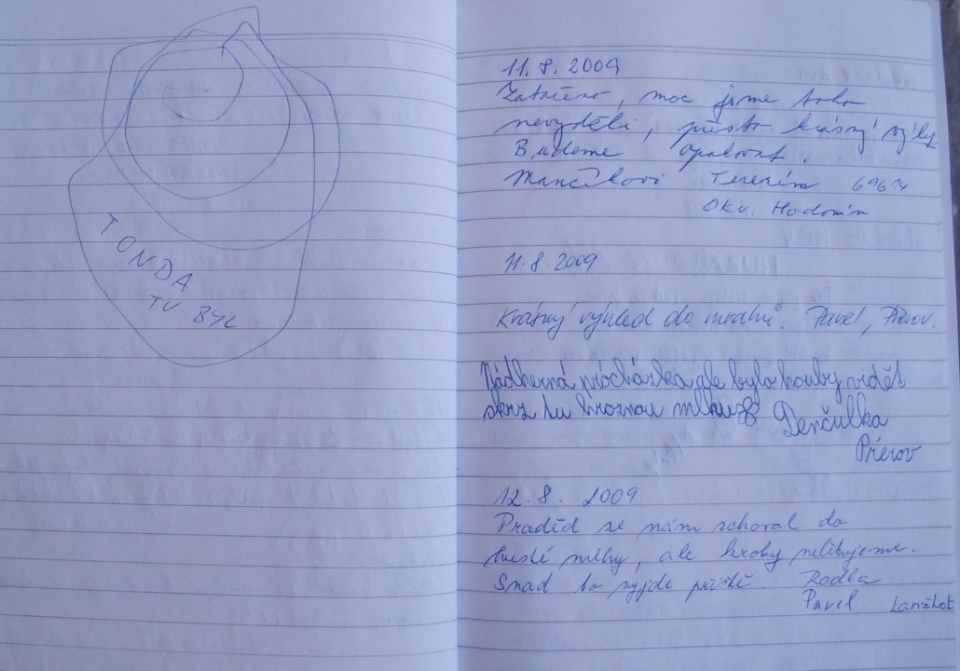 TONDA
TU BYL
11. 8. 2009
Zataženo, moc jsme toho
neviděli, přesto krásný výlet
Budeme opakovat.
Mančíkovi Terezín 69614
Okr. Hodonín
11. 8. 2009
Krásný výhled do mraků. Pavel, Přerov.
Nádherná procházka ale bylo houby vidět
skrz tu hroznou mlhu
Denčulka
Přerov
12. 8. 2009
Praděd se nám schoval do
husté mlhy, ale hroby nelitujeme.
Snad to vyjde příště. Radka
Pavel Lanžhot